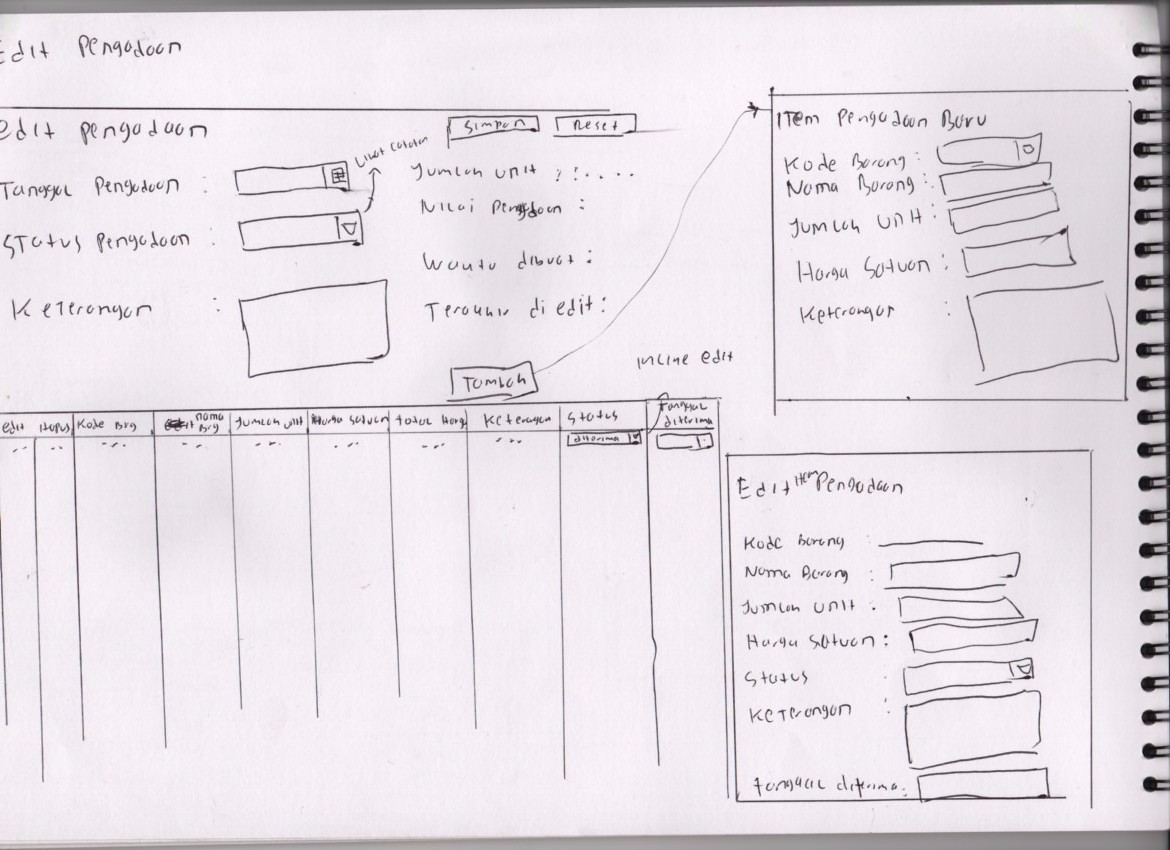 Edit Pengadaan
edit pengadaan
Simpan
Reset
Tanggal Pengadaan :
Lihat catatan
Jumlah unit : : . . . . .
Status Pengadaan :
Nilai Pengadaan :
Waktu dibuat :
Keterangan :
Terakhir di edit :
Tambah
inline edit
edit
Hapus
Kode Brg
nama Brg
Jumlah unit
Harga Satuan
total Harg
Keterangan
Status
tanggal diterima
diterima
Item Pengadaan Baru
Kode Barang :
Nama Barang :
Jumlah Unit :
Harga Satuan :
Keterangan :
Edit Item Pengadaan
Kode Barang :
Nama Barang :
Jumlah Unit :
Harga Satuan :
Status
Keterangan :
tanggal diterima :